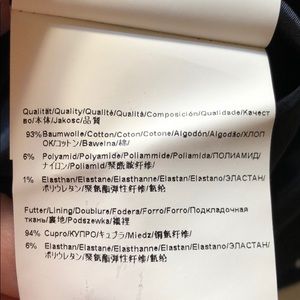 Qualität/Quality/Qualité/Qualità/Composición/Qualidade/Качест
во/本体/Jakosc/品質
93%Baumwolle/Cotton/Coton/Cotone/Algodón/Algodão/ХЛОП
ОК/コットン/Bawelna/棉/
6% Polyamid/Polyamide/Poliammide/Poliamida/ПОЛИАМИД/
ナイロン/Poliamid/聚酰胺纤维/
1% Elasthan/Elastane/Elasthanne/Elastan/Elastano/ЭЛАСТАН/
ポリウレタン/聚氨酯弹性纤维/氨纶
Futter/Lining/Doublure/Fodera/Forro/Forro/Подкладочная
ткань/裏地/Podszewka/襯裡
94% Cupro/КУПРО/キュプラ/Miedz/铜氨纤维/
6% Elasthan/Elastane/Elasthanne/Elastan/Elastano/ЭЛАСТАН/
ポリウレタン/聚氨酯弹性纤维/氨纶